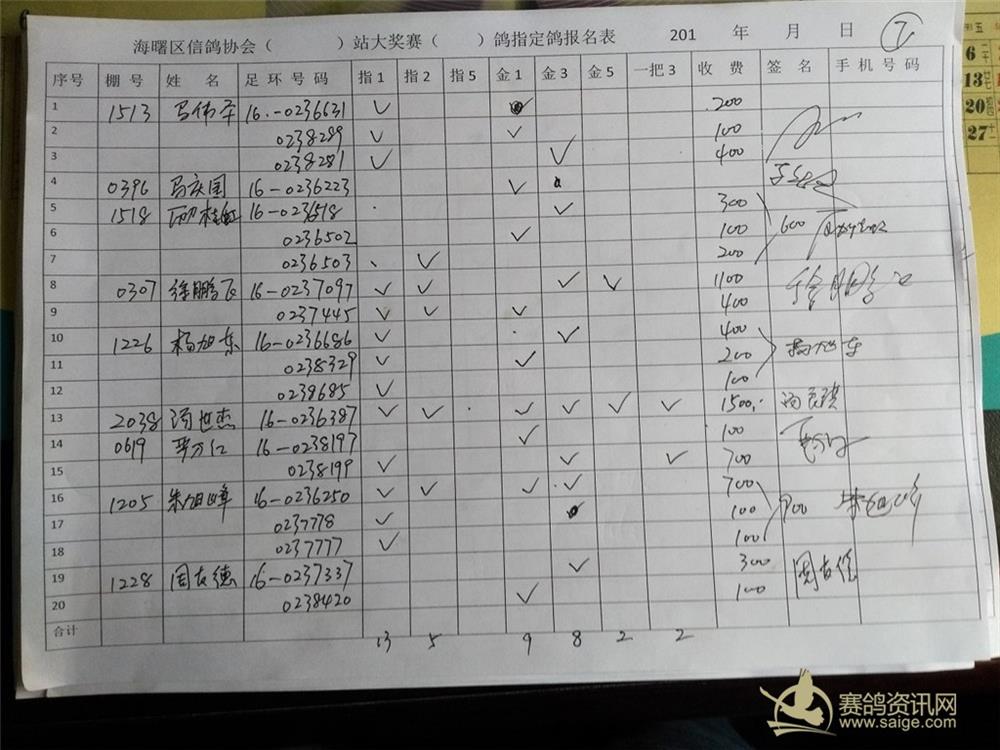 海曙区信鸽协会（ ）站大奖赛（ ）鸽指定鸽报名表 201 年 月 日 ⑦
序号 棚号 姓名 足环号码 指1 指2 指5 金1 金3 金5 一把3 收费 签名 手机号码
1 1513 马伟 16.-0236631 ✓ ✓ 200
2 0238289 ✓ ✓ 100
3 0238281 ✓ ✓ 400
4 0396 马庆国 16-0236223 ✓
5 1518 16-0236518 ✓ 300
6 0236502 ✓ 100 600
7 0236503 ✓ 200
8 0307 徐鹏飞 16-0237097 ✓ ✓ ✓ ✓ 1100 徐鹏飞
9 0237445 ✓ ✓ ✓ 400
10 1226 杨旭东 16-0236686 ✓ ✓ 400
11 0238329 ✓ ✓ 200 杨旭东
12 0238685 ✓ 100
13 2038 汤世杰 16-0236387 ✓ ✓ ✓ ✓ ✓ ✓ 1500.-
14 0619 16-0238197 ✓ 100
15 0238199 ✓ ✓ ✓ 700
16 1205 朱旭峰 16-0236250 ✓ ✓ ✓ ✓ 700
17 0237778 ✓ 100 900 朱旭峰
18 0237777 ✓ 100
19 1228 周友德 16-0237337 ✓ 300 周友德
20 0238420 ✓ 100
合计 13 5 9 8 2 2
五
6
13
20
27
赛鸽资讯网
www.saige.com